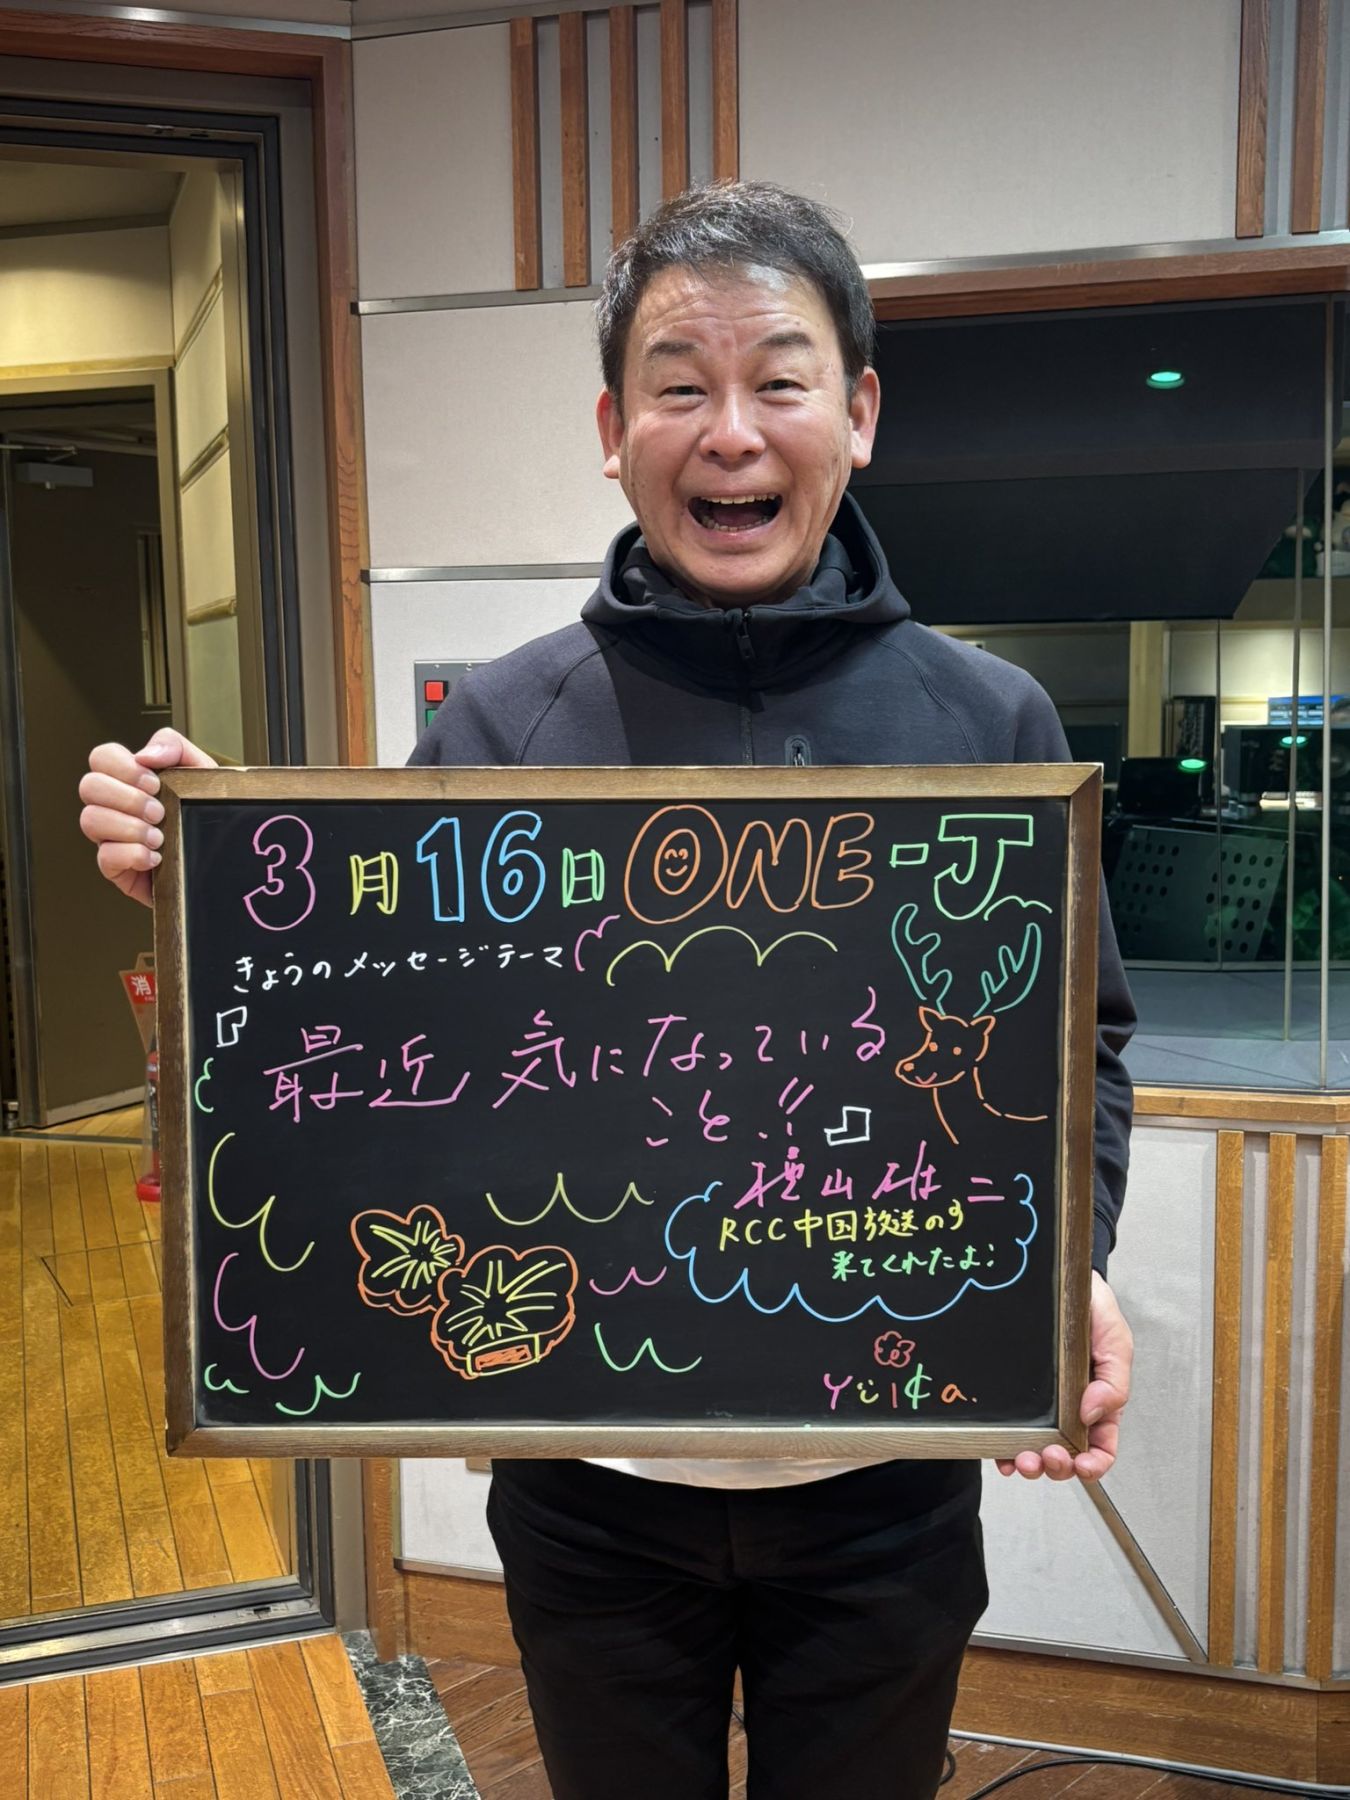 3月16日 ONE-J
きょうのメッセージテーマ
最近 気になっている
こと!!
横山雄二
RCC中国放送の
来てくれたよ!
Yuika.
消